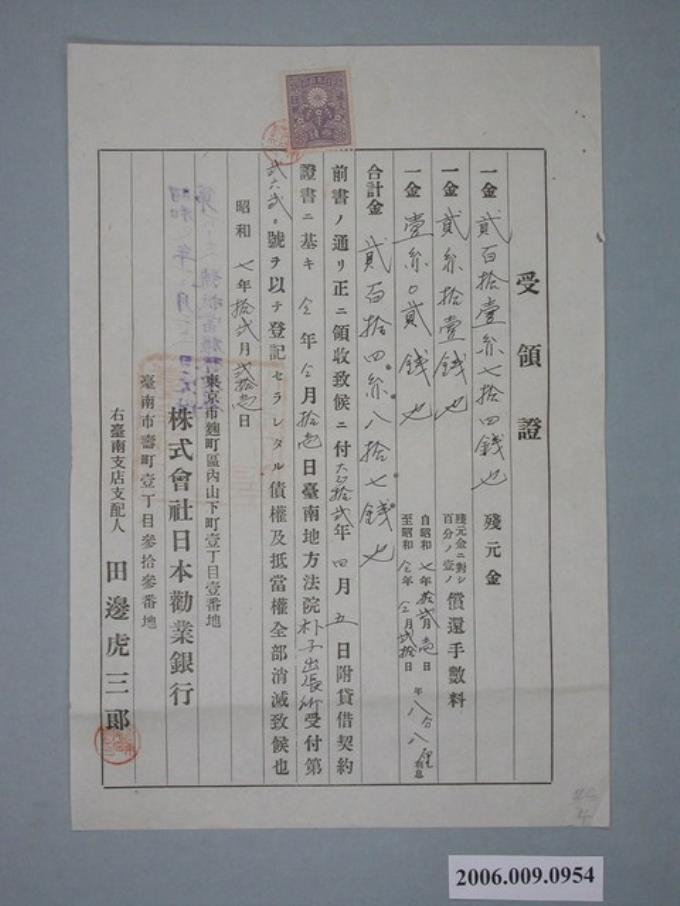 受領證
一金 貳百拾壹糸七拾四錢也 殘元金
一金 貳糸拾壹錢也 殘元金ニ對シ百分ノ壹ノ 償還手數料
一金 壹糸〇貳錢也 自昭和七年拾貳月壱日 至昭和仝年仝月貳拾日 年八分八 利息
合計金 貳百拾四糸八拾七錢也
前書ノ通リ正ニ領收致候ニ付大正拾貳年四月五日附貸借契約
證書ニ基キ仝年仝月拾壱日臺南地方法院朴子出張所受付第
貳六貳。號ヲ以テ登記セラレタル債權及抵當權全部消滅致候也
昭和七年拾貳月貳拾壱日
東京市麴町區內山下町壹丁目壹番地
株式會社日本勸業銀行
臺南市壽町壹丁目參拾參番地
右臺南支店支配人 田邊虎三郞
2006.009.0954